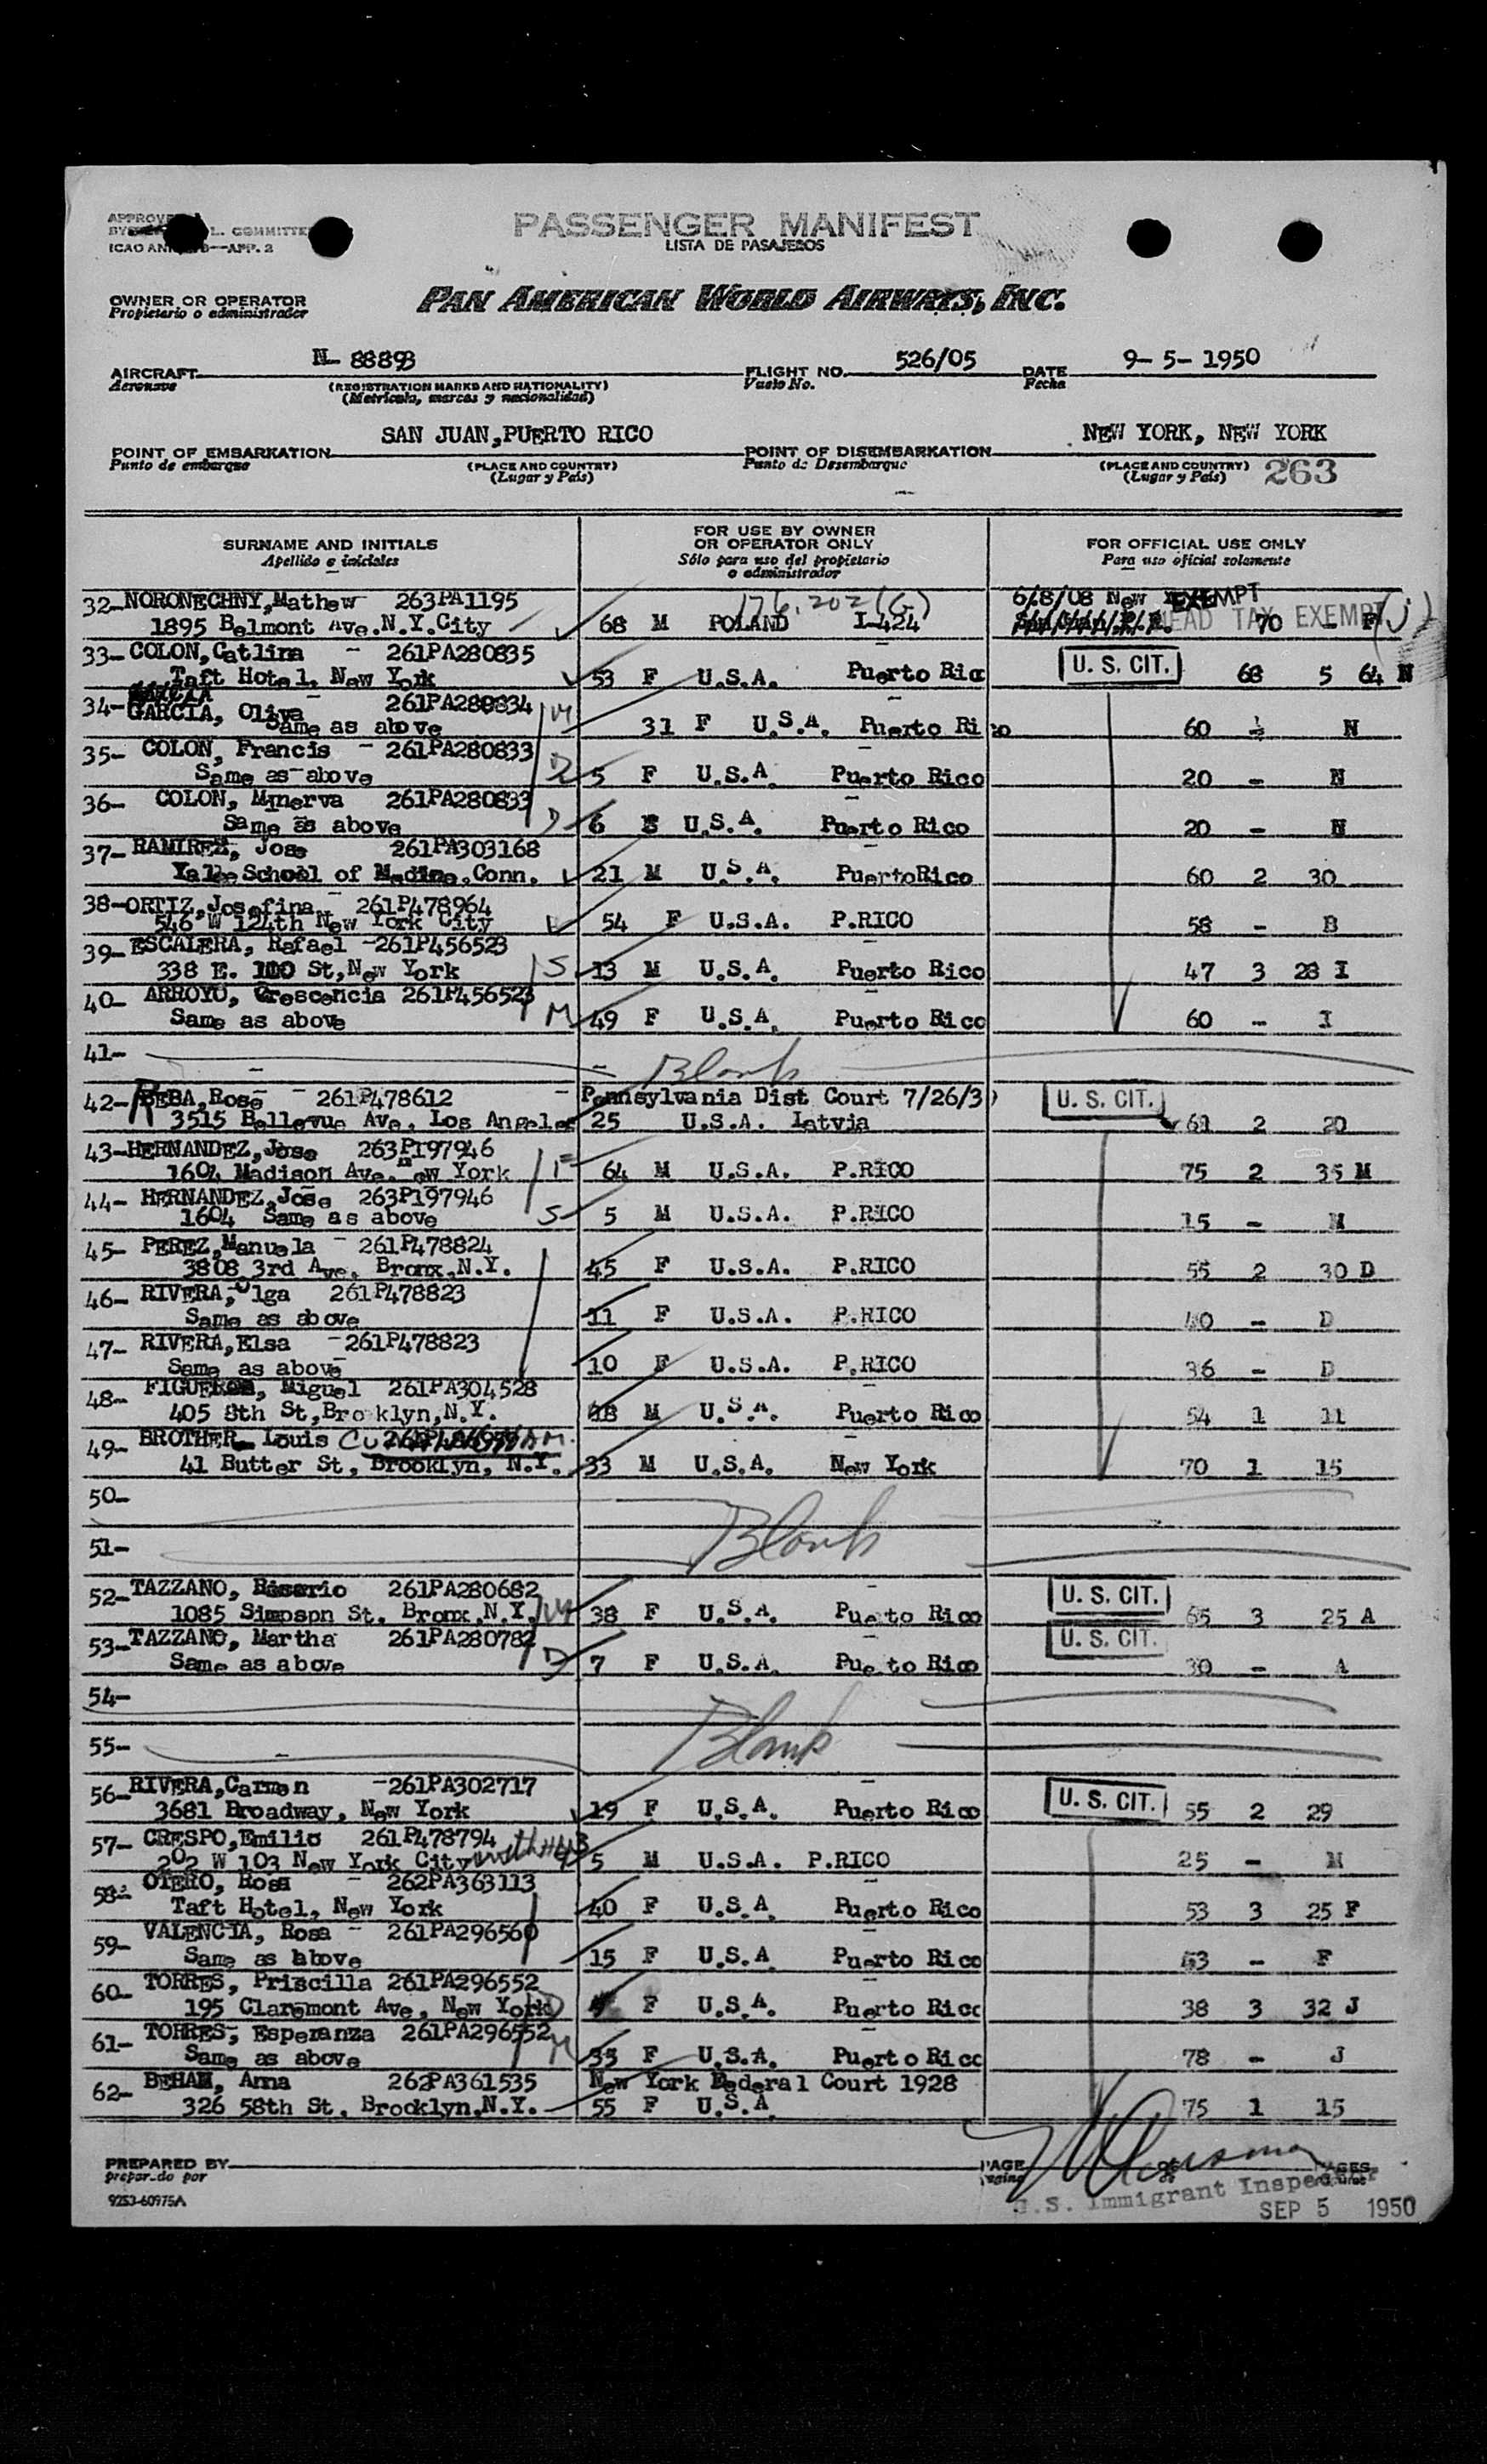 PASSENGER MANIFEST
LISTA DE PASAJEROS
ICAO
APP. 2
OWNER OR OPERATOR
Propietario o administrador
PAN AMERICAN WORLD AIRWAYS, INC.
AIRCRAFT N- 88893 FLIGHT NO. 526/05 DATE 9- 5- 1950
Aeronave (REGISTRATION MARKS AND NATIONALITY) Vuelo No. Fecha
(Metricula, marcas y nacionalidad)
POINT OF EMBARKATION SAN JUAN,PUERTO RICO POINT OF DISEMBARKATION NEW YORK, NEW YORK
Punto de embarque (PLACE AND COUNTRY) Punto de Desembarque (PLACE AND COUNTRY) 263
(Lugar y País) (Lugar y País)
SURNAME AND INITIALS FOR USE BY OWNER OR OPERATOR ONLY FOR OFFICIAL USE ONLY
Apellido e iniciales Sólo para uso del propietario o administrador Para uso oficial solamente
32- NORONECHNY,Mathew 263PA1195 176.202(G) 6/8/08 New EXEMPT
1895 Belmont Ave.N.Y.City 68 M POLAND I-424 HEAD TAX EXEMPT 70 - F (J)
33- COLON,Catlina - 261PA280835 U. S. CIT.
Taft Hotel, New York 53 F U.S.A. Puerto Ric 68 5 64 N
34- GARCIA, Oliva 261PA280834 M
Same as above 31 F U.S.A. Puerto Rico 60 N
35- COLON, Francis - 261PA280833 D
Same as above 5 F U.S.A. Puerto Rico 20 - N
36- COLON, Minerva 261PA280833
Same as above D 6 U.S.A. Puerto Rico 20 - N
37- RAMIREZ, Jose 261PA303168
Yale School of Medine,Conn. 21 M U.S.A. PuertoRico 60 2 30
38- ORTIZ,Josefina - 261P478964
546 W 124th New York City 54 F U.S.A. P.RICO 58 - B
39- ESCALERA, Rafael -261P456523
338 E. 110 St,New York S 13 M U.S.A. Puerto Rico 47 3 28 I
40- ARROYO, Crescencia 261P456523
Same as above M 49 F U.S.A. Puerto Rico 60 - I
41- Blank
42- REBA,Rose - 261P478612 - Pennsylvania Dist Court 7/26/3 U. S. CIT.
3515 Bellevue Ave, Los Angeles 25 U.S.A. Latvia 61 2 20
43- HERNANDEZ,Jose 263P197946
1604 Madison Ave. New York F 64 M U.S.A. P.RICO 75 2 35 M
44- HERNANDEZ,Jose 263P197946
1604 Same as above S 5 M U.S.A. P.RICO 15 - M
45- PEREZ,Manuela - 261P478824
3808 3rd Ave, Bronx,N.Y. 45 F U.S.A. P.RICO 55 2 30 D
46- RIVERA,Olga 261P478823
Same as above 11 F U.S.A. P.RICO 40 - D
47- RIVERA,Elsa -261P478823
Same as above 10 F U.S.A. P.RICO 36 - D
48- FIGUEROA, Miguel 261PA304528
405 8th St,Brooklyn,N.Y. 18 M U.S.A. Puerto Rico 54 1 11
49- BROTHER Louis
41 Butter St, Brooklyn, N.Y. 33 M U.S.A. New York 70 1 15
50-
Blank
51-
52- TAZZANO, Rosario 261PA280682 U. S. CIT.
1085 Simpspn St, Bronx,N.Y. M 38 F U.S.A. Puerto Rico 65 3 25 A
53- TAZZANO, Martha 261PA280782 U. S. CIT.
Same as above D 7 F U.S.A. Pue to Rico 30 - A
54-
Blank
55-
56- RIVERA,Carmen -261PA302717 U. S. CIT.
3681 Broadway, New York 19 F U.S.A. Puerto Rico 55 2 29
57- CRESPO,Emilio 261P478794
202 W 103 New York City with #43 5 M U.S.A. P.RICO 25 - M
58- OTERO, Rosa - 262PA363113
Taft Hotel, New York 40 F U.S.A. Puerto Rico 53 3 25 F
59- VALENCIA, Rosa - 261PA296560
Same as above 15 F U.S.A Puerto Rico 53 - F
60- TORRES, Priscilla 261PA296552
195 Claremont Ave, New York D F U.S.A. Puerto Ric 38 3 32 J
61- TORRES, Esperanza 261PA296552
Same as above M 35 F U.S.A. Puerto Rico 78 - J
62- BEHAN, Anna 262PA361535 New York Federal Court 1928
326 58th St, Brooklyn,N.Y. 55 F U.S.A 75 1 15
PREPARED BY PAGE OF PAGES
9253-60975A
U.S. Immigrant Inspector
SEP 5 1950